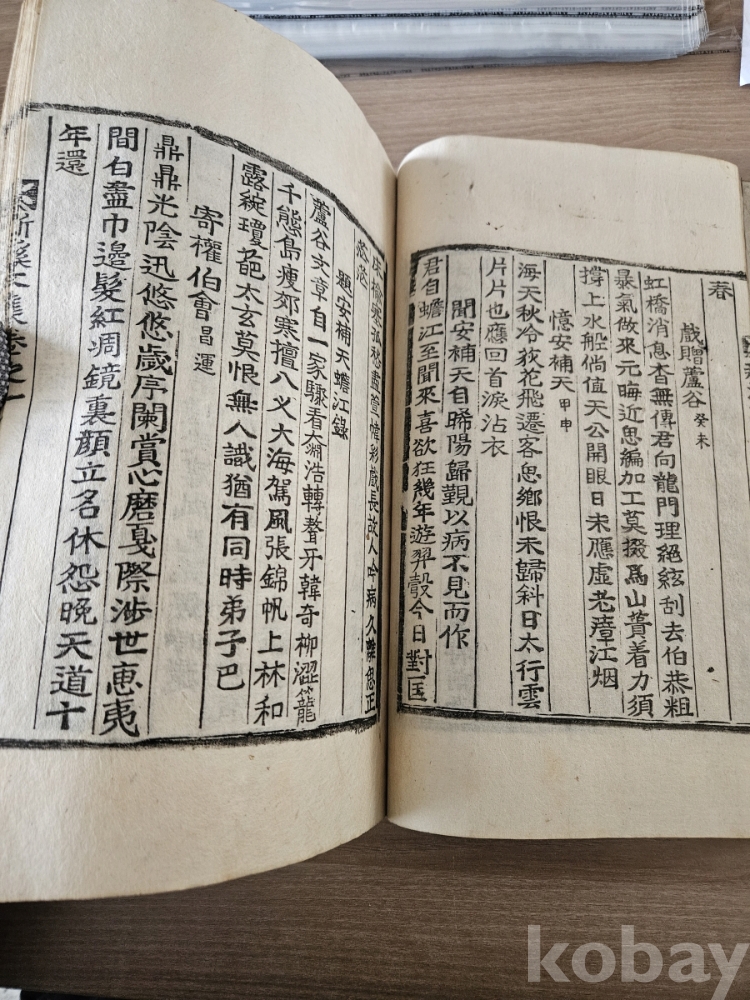 春
戲贈蘆谷 癸未
虹橋消息杳無傳君向龍門理絕絃刮去伯恭粗
暴氣做來元晦近思編加工莫掇爲山蕢着力須
撐上水船倘值天公開眼日未應虛老瘴江烟
憶安補天 甲申
海天秋冷荻花飛遷客思鄉恨未歸斜日太行雲
片片也應回首淚沾衣
聞安補天自晞陽歸覲以病不見而作
君自蟾江至聞來喜欲狂幾年遊羿彀今日對匡
床榆寒孤愁盡萱幃彩戲長故人吟病久離思正
茫茫
題安補天蟾江錄
蘆谷文章自一家驟看大㴠浩轉聱牙韓奇柳澀籠
千態島瘦郊寒擅八义大海駕風張錦帆上林和
露綻瓊葩太玄莫恨無人識猶有同時弟子巴
寄權伯會 昌運
鼎鼎光陰迅悠悠歲序闌賞心磨戛際涉世惠夷
間白盡巾邊髮紅凋鏡裏顏立名休怨晚天道十
年還
溪文集卷之一
kobay